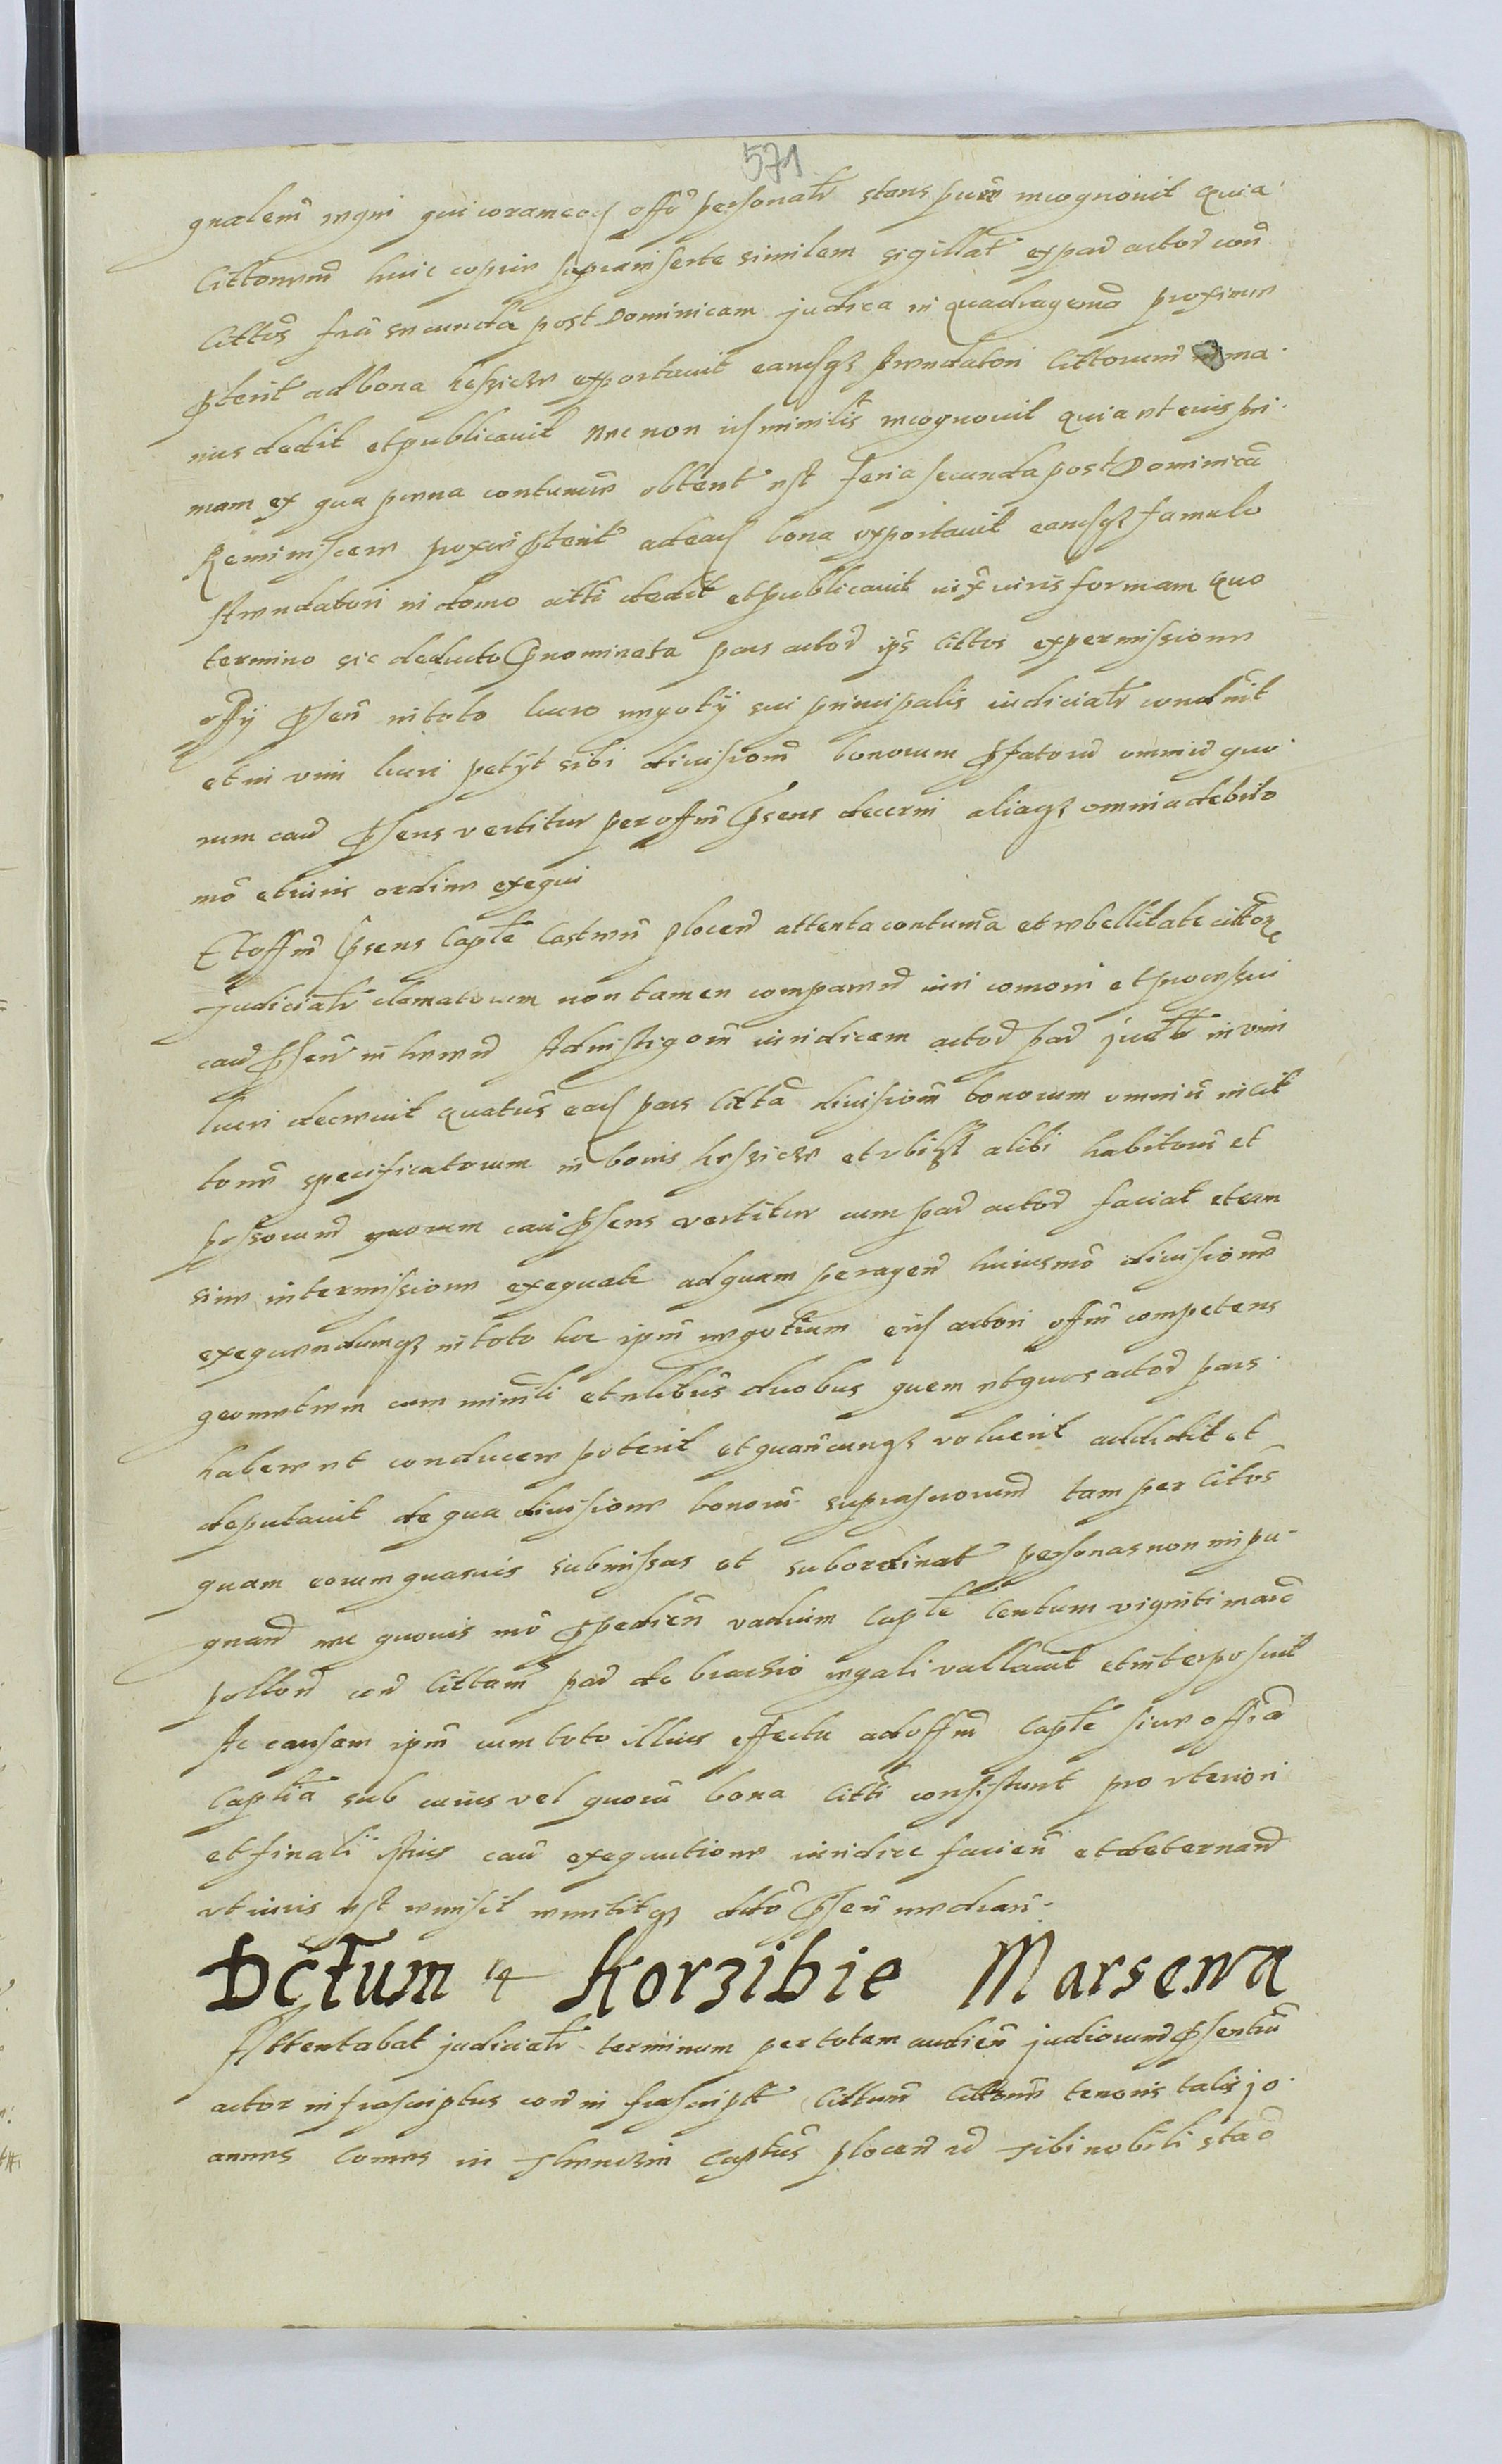 571
gnalem̃ regni qui coram eod offo personalr stans pure recognovit quia
Cittonem̃ huic copiæ suprainserte similem sigillat ex par actor con
Cittos feria secunda post Dominicam judica in quadragena proxime
pterit ad bona exportavit eamqz Arendatori Cittorum in ma
nus dedit et publicavit nec non id minilis recognovit quia ut eius pri
mam ex qua pœna contumae obtent est feria secunda post Dominicã
Reminiscere proxie pterit ad ead bona exportavit eamqz famulo
Arendatori in domo atti dedit et publicavit iux iuris formam Quo
termino sic deducto pnominata pars actor ips Cittos ex permissione
offy psen in toto lucro negoty sui principalis iudicialr condenit
et in vim lucri petyt sibi divisionẽ bonorum pfator omniũ quo
rum cau psens vertitur per offm psens decerni aliaqz omnia debito
mõ et iuris ordine exequi
Et offm psens Capte Castren plocen attenta contuma et rebellitate citor
judicialr clamatorum non tamen comparen iuri comoni et processui
cau psen in heren Ad instigom iuridicam actor par judlr in vim
lucri decrevit quatus ead pars Citta divisionẽ bonorum omniũ in cit
tone specificatorum in bonis et ubiqz alibi habitorũ et
quorum cau psens vertitur cum par actor faciat et eam
sine intermissione exequatr ad quam peragen huiusmõ divisionẽ
exequendumqz in toto hoc ipm negotium eid actori offm competens
geometram cum minili et nlibus duobus quem et quos actor pars
habere et conducere poterit et quancunqz voluerit addidit et
deputavit de qua divisione bonorũ tam per Citos
quam eorum quasvis submissas et subordinat personas non impu
gnan nec quovis mõ pedien vadium Capte Centum viginti marc
pollon con Cittam par de brachio regali vallavit et interposuit
Ac causam ipm cum toto illius effectu ad offm Capte sive offia
Captia sub cuius vel quorũ bona Citti consistunt pro vteriori
et finali istius cau exequutione iuridice facien et deternand
vt iuris est remisit remittitqz dcto psen median
Dctum Korzibie Marsewa
Attentabat judicialr terminum per totam audien judiciorum psentiũ
actor infrascriptus con infrascript Cittum Cittone tenoris talis jo
annes Comes in Captus plocen etc Tibi nobili stac